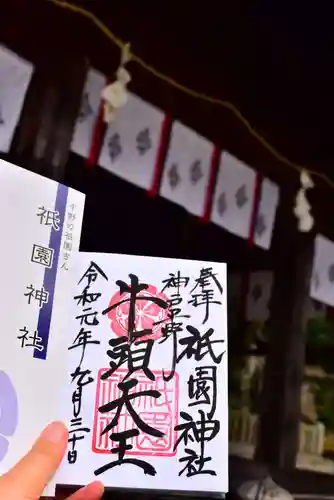 奉拝
祇園神社
神戸平野
牛頭天王
令和元年九月三十日
平野の祇園さん
祇園神社